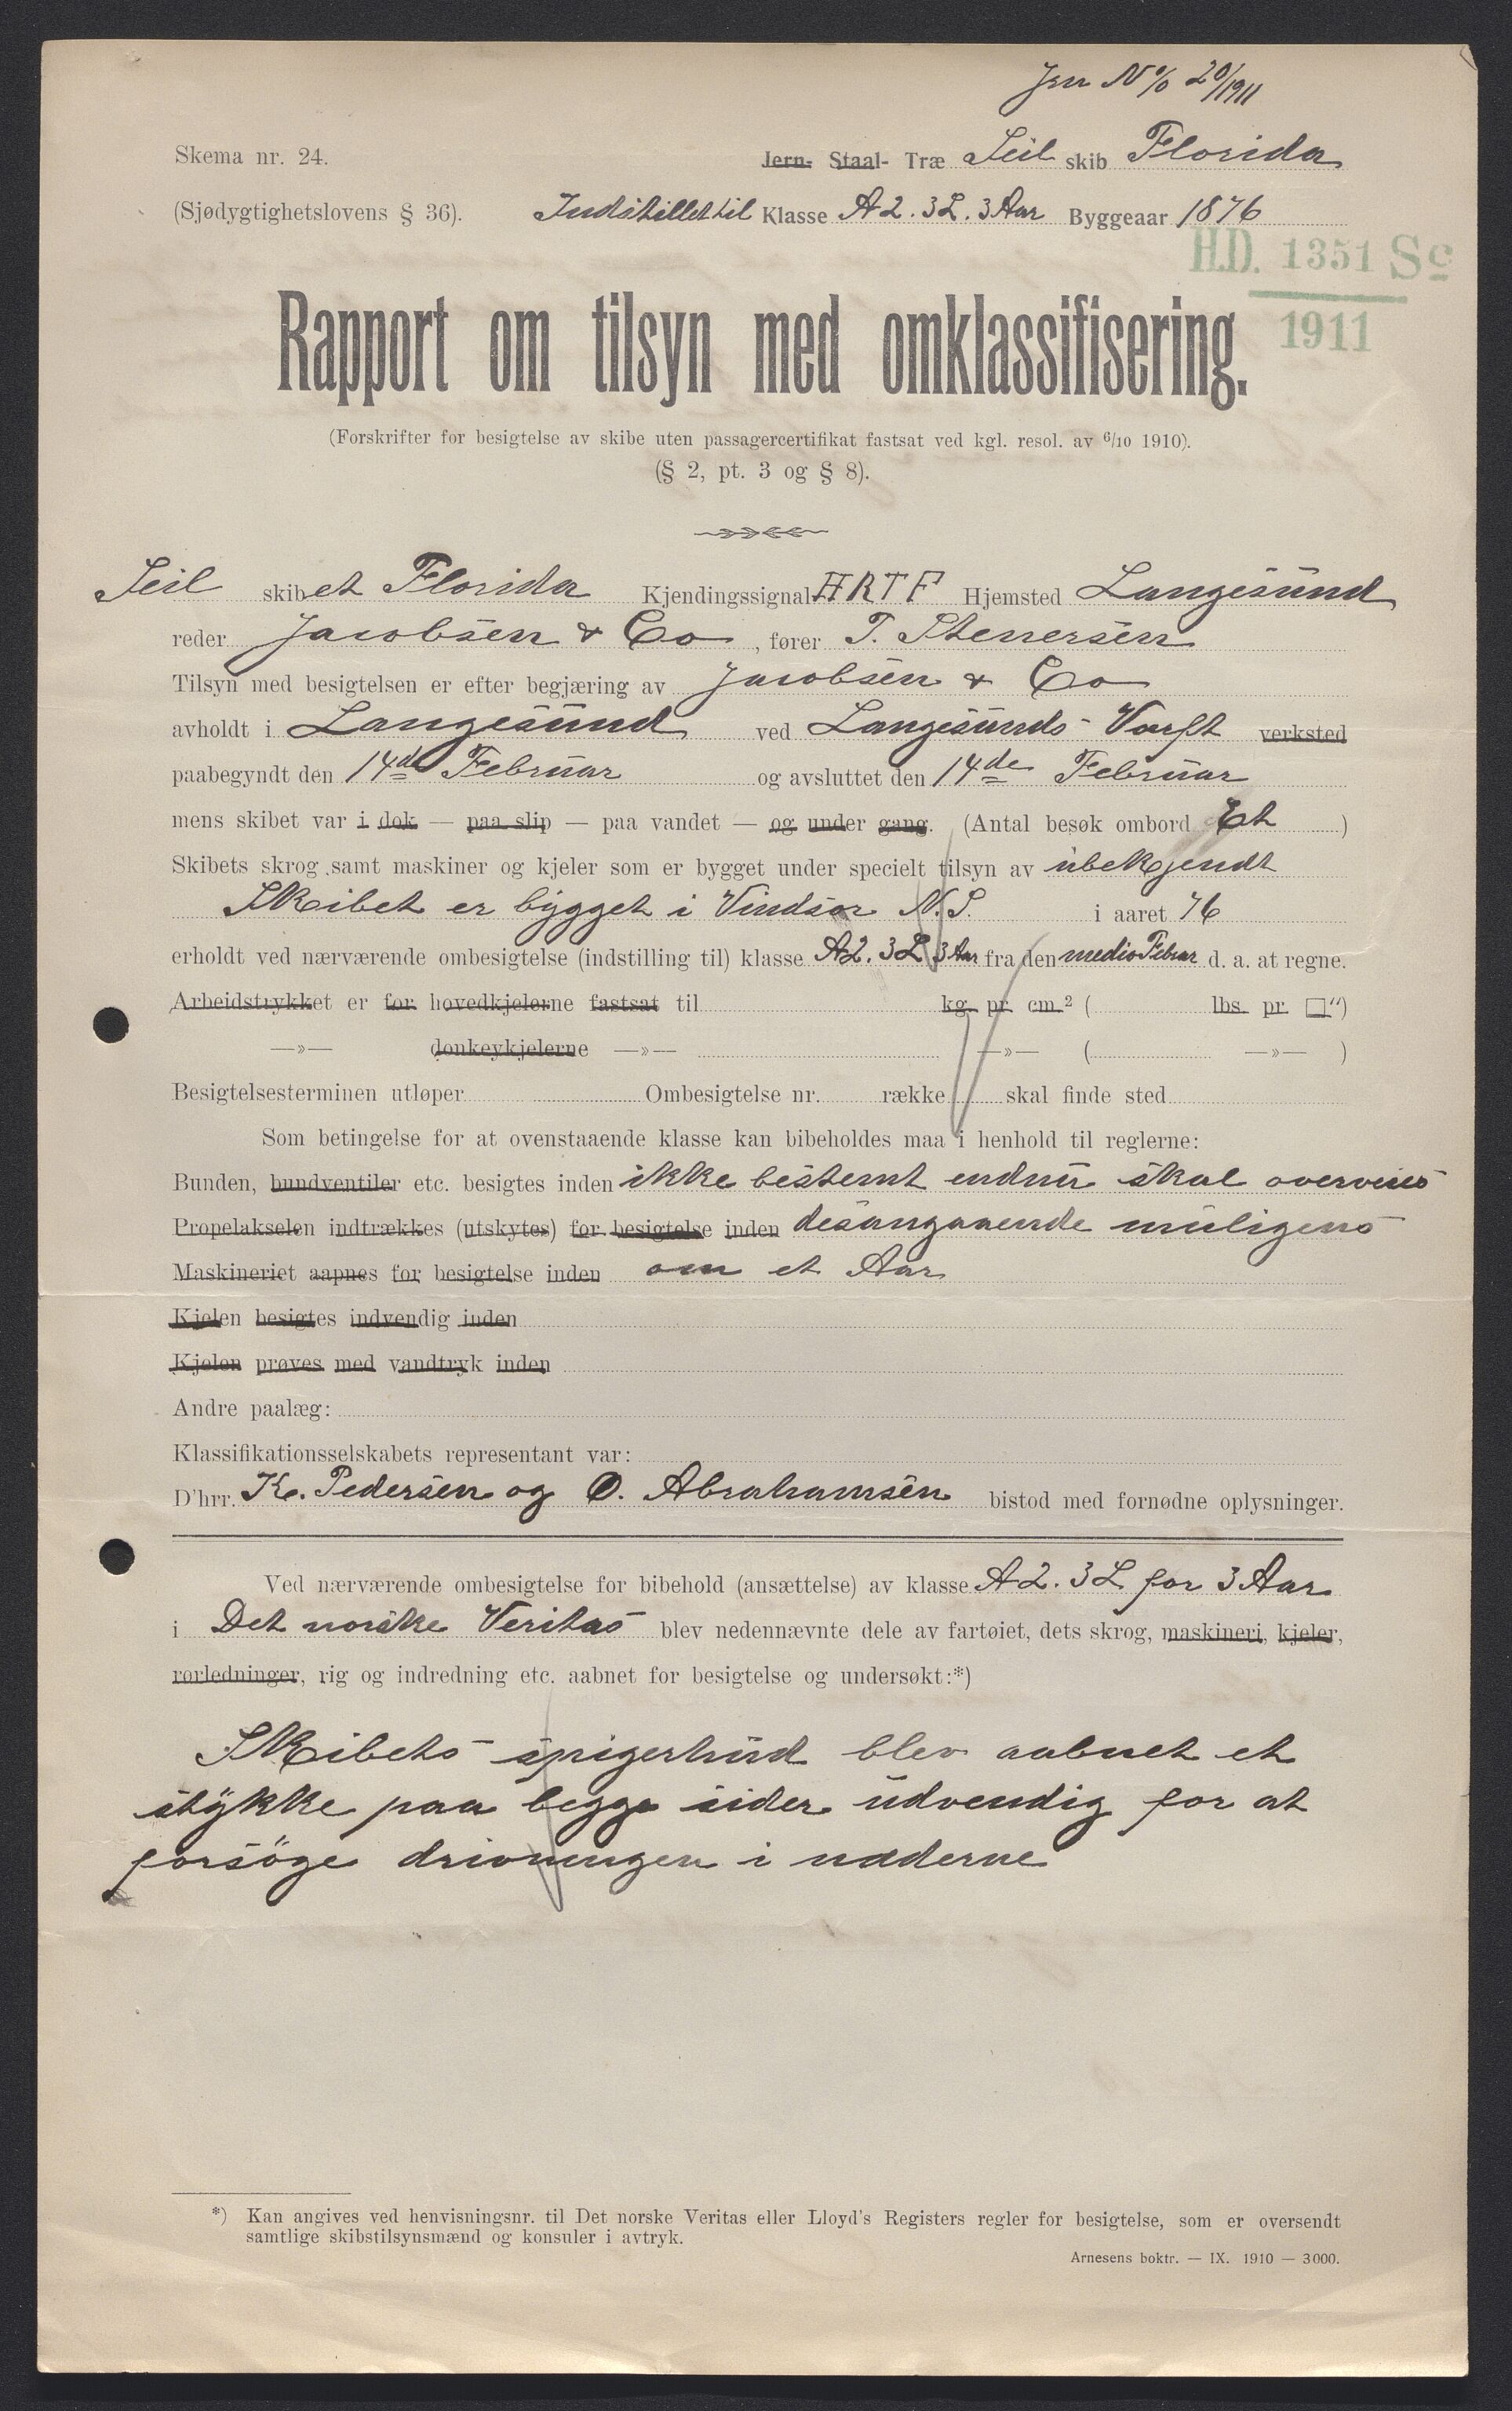 Jrn No 20/1911
Skema nr. 24.
Jern- Staal- Træ Seil skib Florida
(Sjødygtighetslovens § 36). Indstillet til Klasse A2. 3L. 3 Aar Byggeaar 1876
H.D. 1351 Sc
1911
Rapport om tilsyn med omklassifisering.
(Forskrifter for besigtelse av skibe uten passagercertifikat fastsat ved kgl. resol. av 6/10 1910).
(§ 2, pt. 3 og § 8).
Seil skibet Florida Kjendingssignal HRTF Hjemsted Langesund
reder Jacobsen & Co, fører T. Stenersen
Tilsyn med besigtelsen er efter begjæring av Jacobsen & Co
avholdt i Langesund ved Langesunds Værft verksted
paabegyndt den 14de Februar og avsluttet den 14de Februar
mens skibet var i dok — paa slip — paa vandet — og under gang. (Antal besøk ombord Et )
Skibets skrog samt maskiner og kjeler som er bygget under specielt tilsyn av ubekjendt
Skibet er bygget i Vindsor N.S. i aaret 76
erholdt ved nærværende ombesigtelse (indstilling til) klasse A2. 3L 3 Aar fra den medio Febuar d. a. at regne.
Arbeidstrykket er for hovedkjelerne fastsat til kg. pr. cm.² ( lbs. pr. □")
—»— donkeykjelerne —»— —»— ( —»— )
Besigtelsesterminen utløper Ombesigtelse nr. række skal finde sted
Som betingelse for at ovenstaaende klasse kan bibeholdes maa i henhold til reglerne:
Bunden, bundventiler etc. besigtes inden ikke bestemt endnu skal overveies
Propelakselen indtrækkes (utskytes) for besigtelse inden desangaaende muligens
Maskineriet aapnes for besigtelse inden om et Aar
Kjelen besigtes indvendig inden
Kjelen prøves med vandtryk inden
Andre paalæg:
Klassifikationsselskabets representant var:
D'hrr. K. Pedersen og O. Abrahamsen bistod med fornødne oplysninger.
Ved nærværende ombesigtelse for bibehold (ansættelse) av klasse A2. 3L for 3 Aar
i Det norske Veritas blev nedennævnte dele av fartøiet, dets skrog, maskineri, kjeler,
rørledninger, rig og indredning etc. aabnet for besigtelse og undersøkt:*)
Skibets spigerhud blev aabnet et
stykke paa begge sider udvendig for at
forsöge drivningen i nadderne
*) Kan angives ved henvisningsnr. til Det norske Veritas eller Lloyd's Registers regler for besigtelse, som er oversendt
samtlige skibstilsynsmænd og konsuler i avtryk.
Arnesens boktr. — IX. 1910 — 3000.